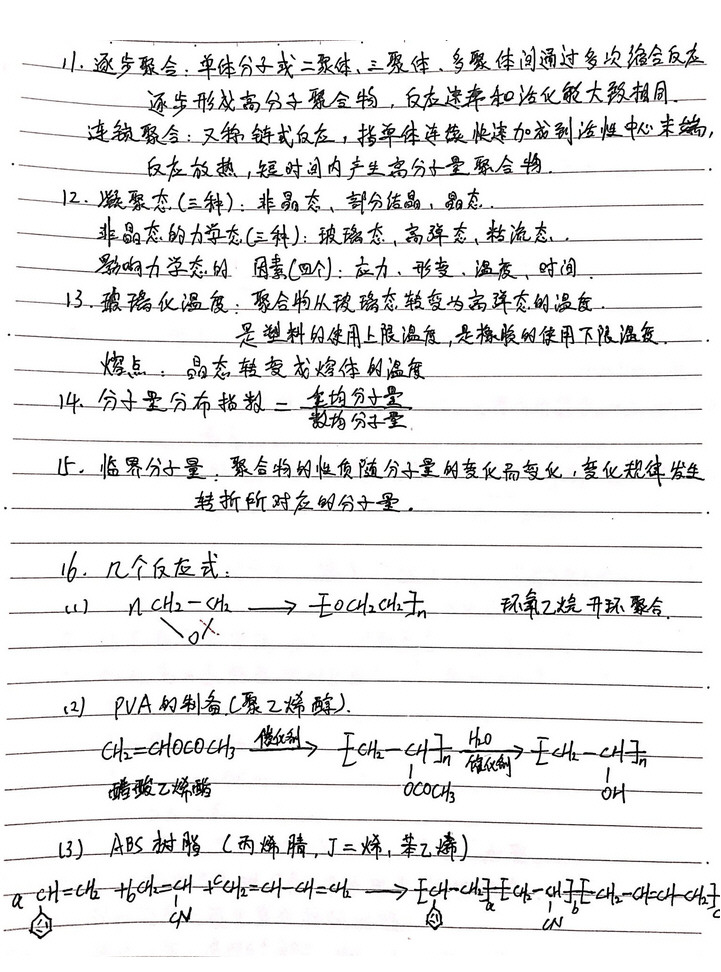 11. 逐步聚合：单体分子或二聚体、三聚体、多聚体间通过多次缩合反应
逐步形成高分子聚合物，反应速率和活化能大致相同.
连锁聚合：又称链式反应，指单体连续快速加成到活性中心末端,
反应放热，短时间内产生高分子量聚合物.
12. 凝聚态(三种)：非晶态、部分结晶、晶态.
非晶态的力学态(三种)：玻璃态、高弹态、粘流态.
影响力学态的 因素(四个)：应力、形变、温度、时间.
13. 玻璃化温度：聚合物从玻璃态转变为高弹态的温度.
是塑料的使用上限温度，是橡胶的使用下限温度.
熔点：晶态转变成熔体的温度
14. 分子量分布指数 = 重均分子量
数均分子量
15. 临界分子量：聚合物的性质随分子量的变化而变化，变化规律发生
转折所对应的分子量.
16. 几个反应式：
(1) n CH2-CH2 → [OCH2CH2]n 环氧乙烷开环聚合.
O
(2) PVA的制备(聚乙烯醇).
CH2=CHOCOCH3 催化剂→ [CH2-CH]n H2O 催化剂→ [CH2-CH]n
醋酸乙烯酯 OCOCH3 OH
(3) ABS树脂 (丙烯腈, 丁二烯, 苯乙烯)
a CH=CH2 +b CH2=CH +c CH2=CH-CH=CH2 → [CH-CH2]a[CH2-CH]b[CH2-CH=CH-CH2]c
CN CN